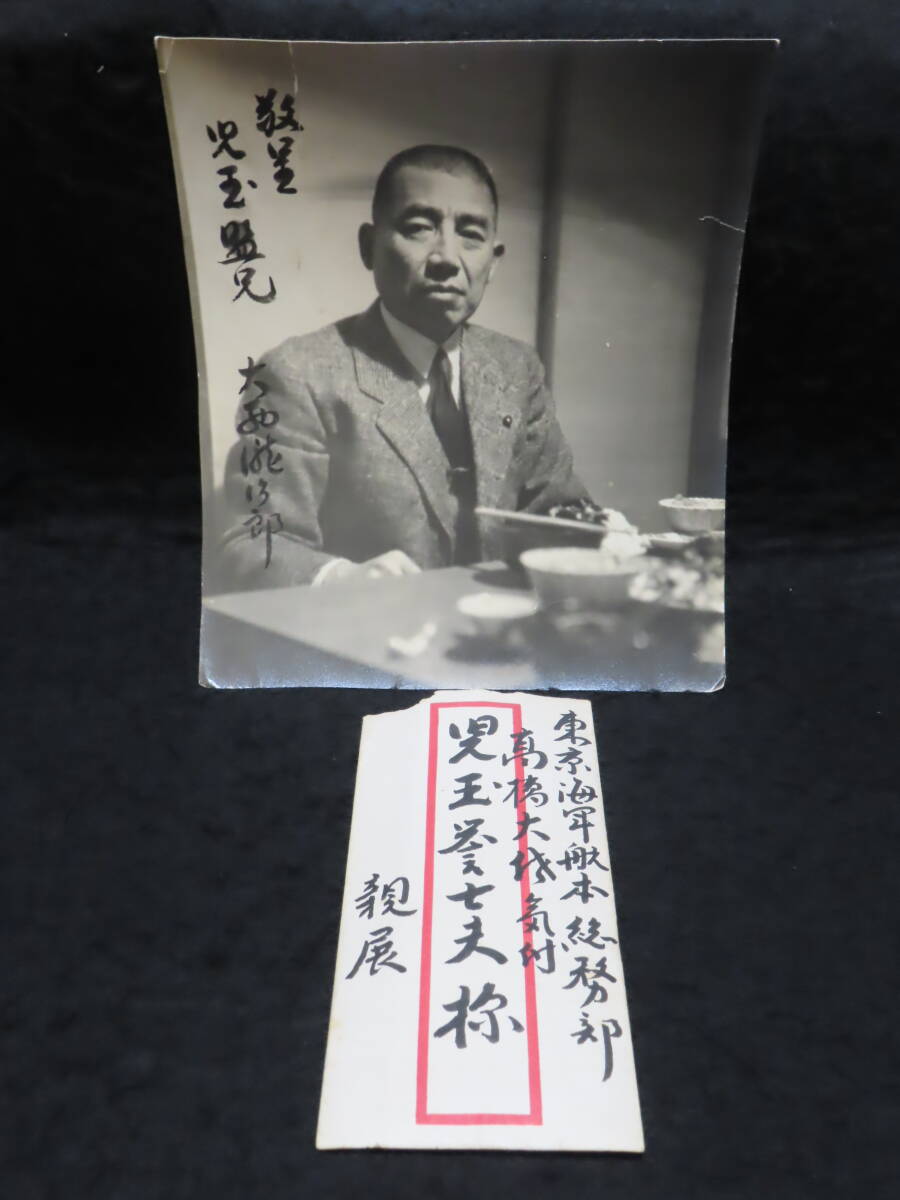 敬呈
児玉盟兄
大西瀧治郎
東京海軍航本総務部
高橋大佐気付
児玉誉士夫様
親展